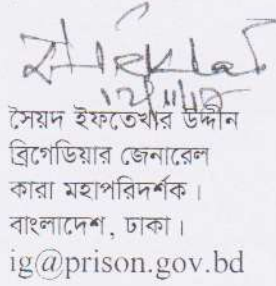 সৈয়দ ইফতেখার উদ্দীন
ব্রিগেডিয়ার জেনারেল
কারা মহাপরিদর্শক।
বাংলাদেশ, ঢাকা।
ig@prison.gov.bd